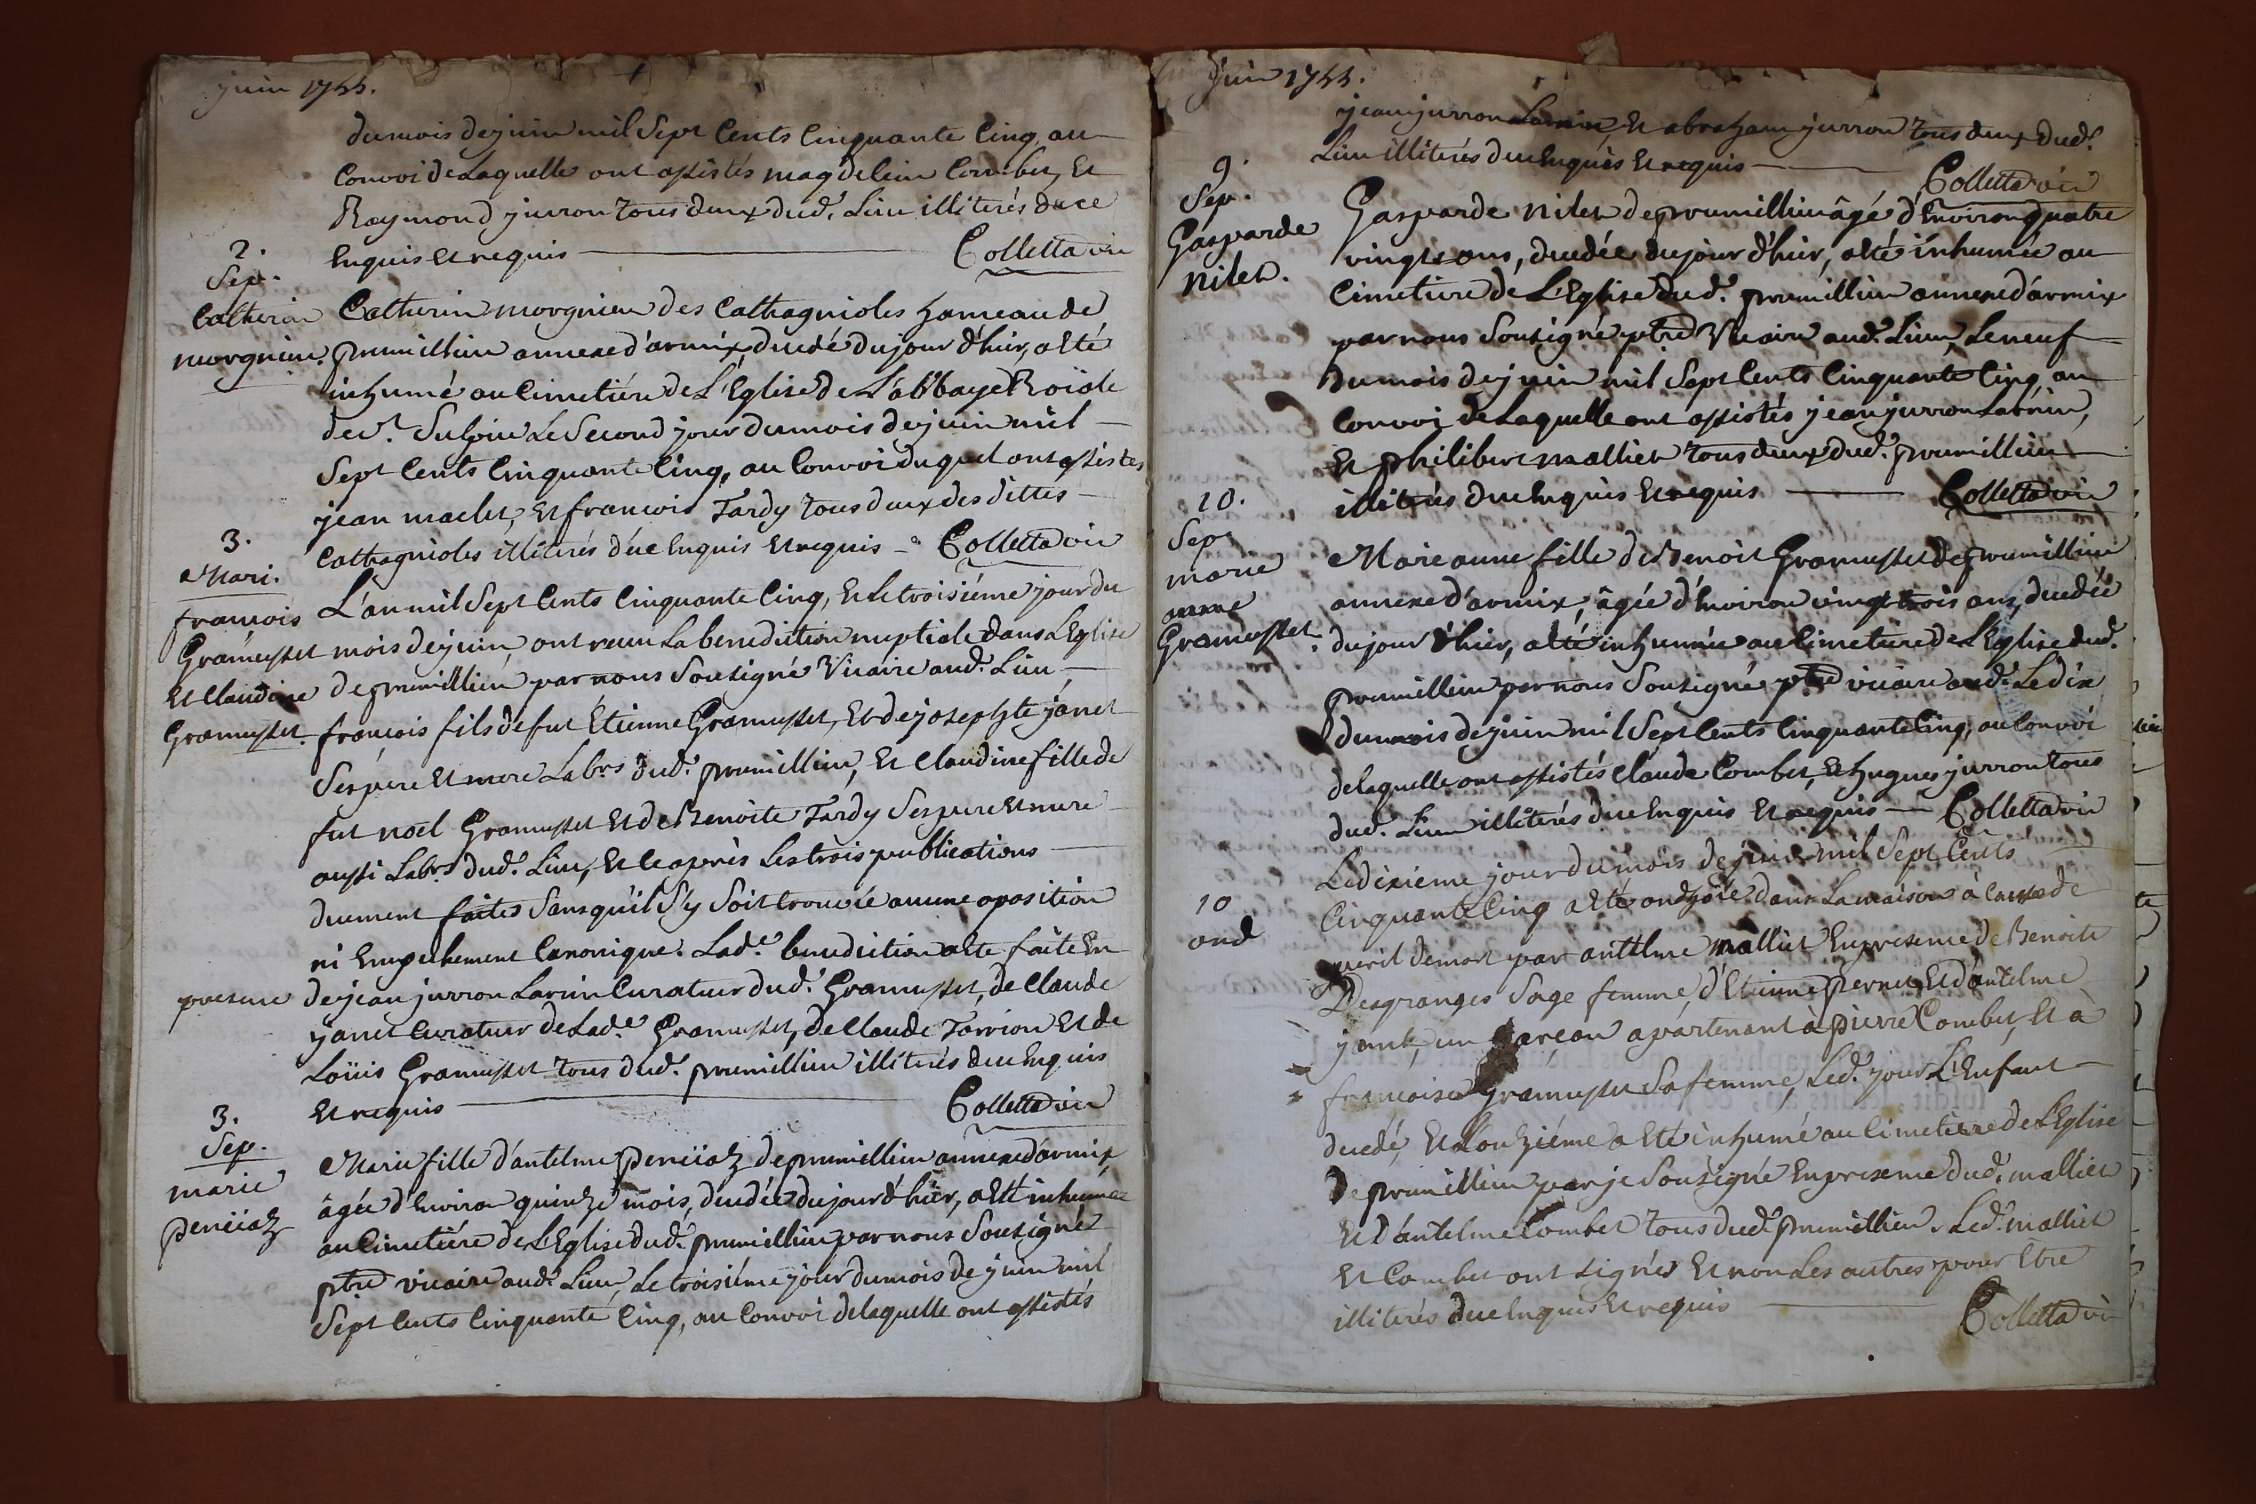 juin 1755.
du mois de juin mil Sept Cents Cinquante Cinq, au
Convoi de Laquelle ont assistés magdelein Combet, Et
Raymond jurron tous deux dud.^t Lieu illiterés de ce
Enquis et requis — Colletta vic
2.
Sep.
Catherin
morgnieu.
Catherin morgnieu des Cathagnioles hameau de
premillieu annexe d'armix, decedé du jour d'hier, a eté
inhumé au Cimetiére de L'Eglise de L'abbaye Roïale
de S.^t Sulpice Le Second jour du mois de juin mil
Sept Cents Cinquante Cinq, au Convoi duquel ont assistes
jean maclet, et francois Tardy tous deux des dittes
Cathagnioles illiterés de ce Enquis et requis - Colletta vic
3.
Mari.
françois
Gramusset
Et Claudine
Gramusset.
L'an mil Sept Cents Cinquante Cinq, et Le troisiéme jour du
mois de juin, ont recu La benediction nuptiale dans L'Eglise
de premillieu par nous Souzigné Vicaire aud.^t Lieu,
françois fils de fut Étienne Gramusset, Et de josephte janet
Ses pere et mere Lab.^rs dud.^t premillieu, et Claudine fille de
fut noël Gramusset et de Benoite Tardy Ses pere et mere
aussi Lab.^rs dud.^t Lieu, et ce après Les trois publications
duement faites Sans qu'il S'y Soit trouvée aucune oposition
ni Empechement Canonique. Lad.^e benediction a eté faite En
presence de jean jurron Larrin Curateur dud.^t Gramusset, de Claude
janet Curateur de Lad.^e Gramusset, de Claude Tarrion et de
Loüis Gramusset tous dud.^t premillieu illiterés de ce Enquis
et requis — Colletta vic
3.
Sep.
marie
penüaz
Marie fille d'antelme penüaz de premillieu annexe d'armix,
âgée d'Environ quinze mois, decedée du jour d'hier, a eté inhumée
au Cimetiére de L'Eglise dud.^t premillieu par nous Souzigné
ptre vicaire aud.^t Lieu, Le troisiéme jour du mois de juin mil
Sept Cents Cinquante Cinq, au Convoi de laquelle ont assistés
juin 1755.
jean jurron Larrin, et abraham jurron tous deux dud.^t
Lieu illiterés de ce Enquis et requis — Colletta vic
9.
Sep.
Gasparde
nilet.
Gasparde nilet de premillieu âgé d'Environ quatre
vingts ans, decedée du jour d'hier, a eté inhumée au
Cimetiere de L'Eglise dud.^t premillieu annexe d'armix
par nous Souzigné ptre Vicaire aud.^t Lieu, Le neuf
du mois de juin mil Sept Cents Cinquante Cinq, au
Convoi de Laquelle ont assistés jean jurron Larrin,
et philibert malliet tous deux dud.^t premillieu
illiterés de ce Enquis et requis — Colletta vic
10.
Sep.
marie
anne
Gramusset.
Marie anne fille de Benoit Gramusset de premillieu
annexe d'armix, âgée d'Environ vingt trois ans, decedée
du jour d'hier, a eté inhumée au Cimetiere de L'Eglise dud.^t
premillieu par nous Souzigné ptre vicaire aud.^t Le dix
du mois de juin mil Sept Cents Cinquante Cinq, au Convoi
de laquelle ont assistés Claude Combet, et hugues jurron tous
dud.^t Lieu illiterés de ce Enquis et requis — Colletta vic
10
ond
Le dixiéme jour du mois de juin mil Sept Cents
Cinquante Cinq a eté ondoïé dans La maison à cause de
peril de mort par antelme malliet En presence de Benoite
Desgranges Sage femme, d'Etienne pernet, Et d'antelme
janet, un garçon apartenant à pierre Combet, et à
francoise Gramusset Sa femme, Led.^t jour L'Enfant
decedé, et L'onziéme a eté inhumé au Cimetiere de L'Eglise
de premillieu par je Souzigné En presence dud.^t malliet
Et d'antelme Combet tous dud.^t premillieu. Led.^t malliet
Et Combet ont signés et non Les autres pour Etre
illiterés de ce Enquis et requis — Colletta vic